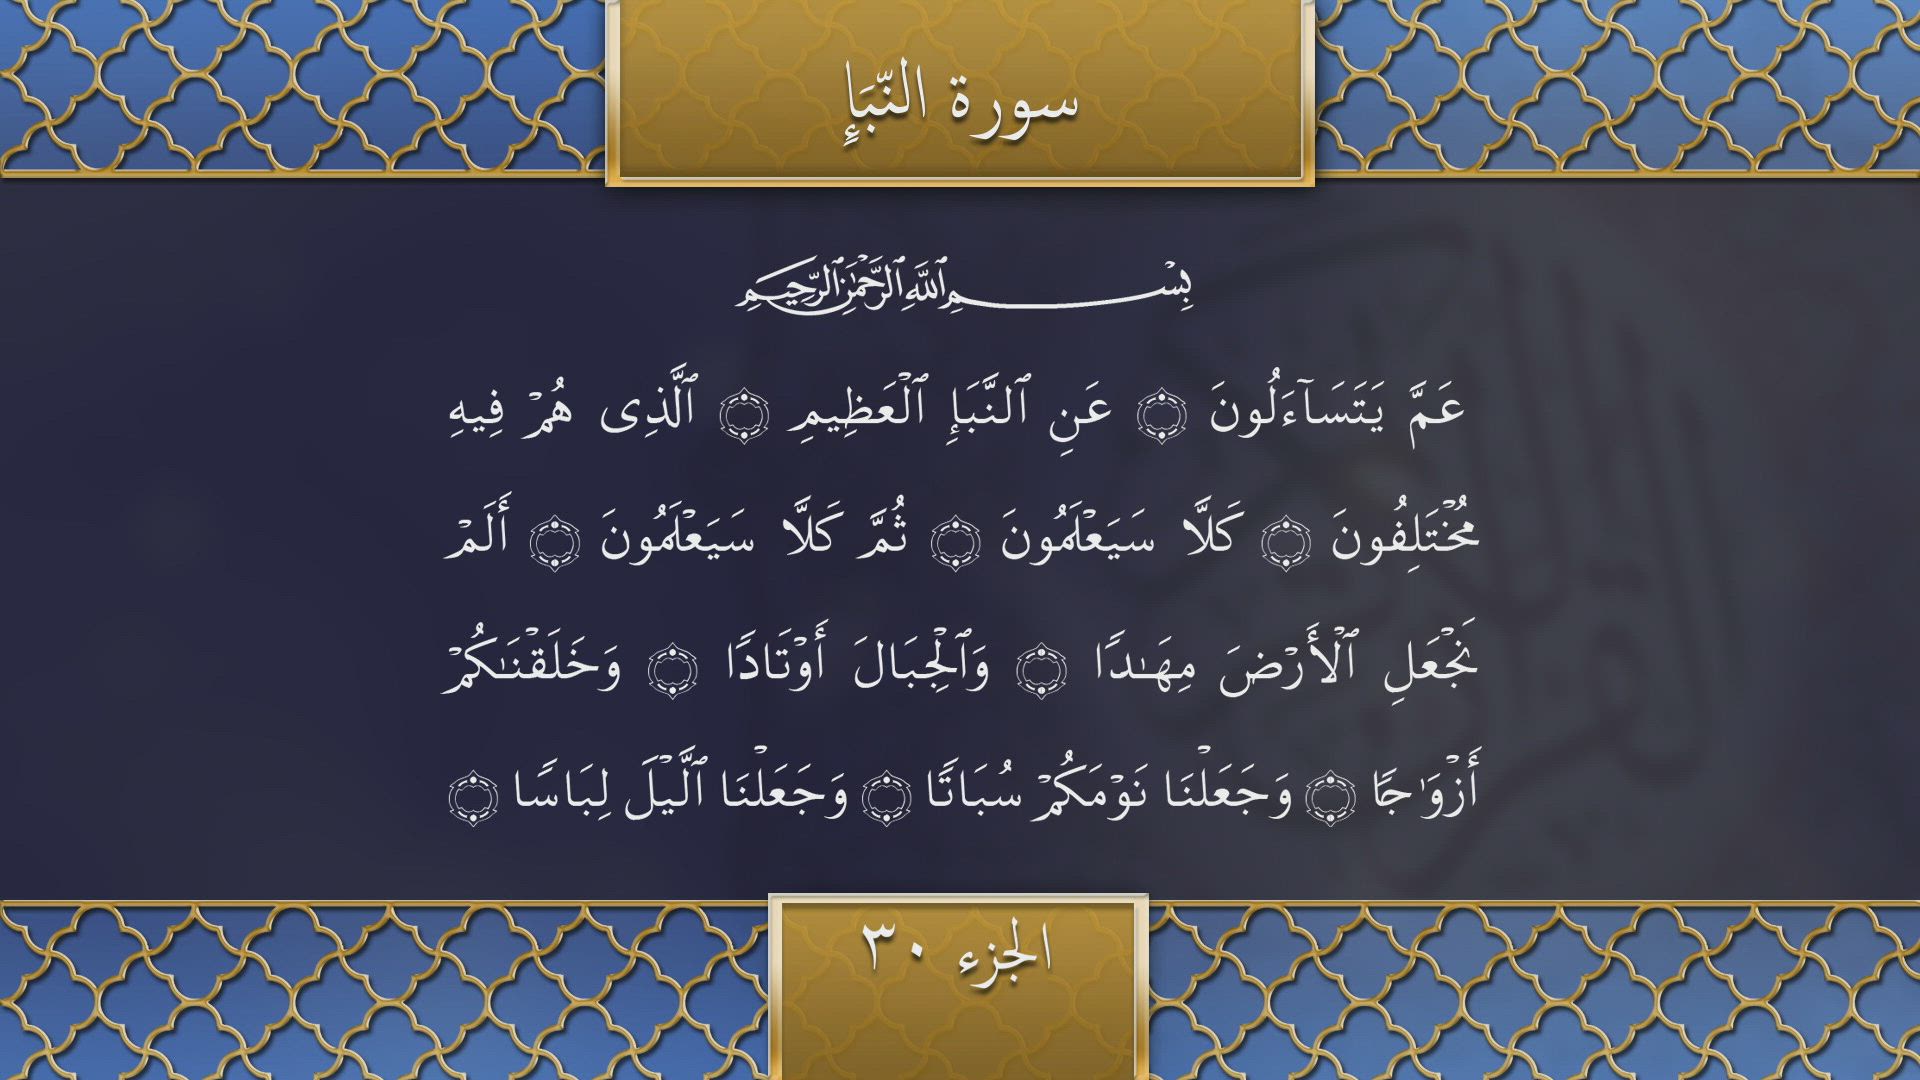 سورة النّبَإِ
بِسْمِ ٱللَّهِ ٱلرَّحْمَٰنِ ٱلرَّحِيمِ
عَمَّ يَتَسَآءَلُونَ ۝ عَنِ ٱلنَّبَإِ ٱلْعَظِيمِ ۝ ٱلَّذِى هُمْ فِيهِ
مُخْتَلِفُونَ ۝ كَلَّا سَيَعْلَمُونَ ۝ ثُمَّ كَلَّا سَيَعْلَمُونَ ۝ أَلَمْ
نَجْعَلِ ٱلْأَرْضَ مِهَـٰدًا ۝ وَٱلْجِبَالَ أَوْتَادًا ۝ وَخَلَقْنَـٰكُمْ
أَزْوَٰجًا ۝ وَجَعَلْنَا نَوْمَكُمْ سُبَاتًا ۝ وَجَعَلْنَا ٱلَّيْلَ لِبَاسًا ۝
الجزء ٣٠